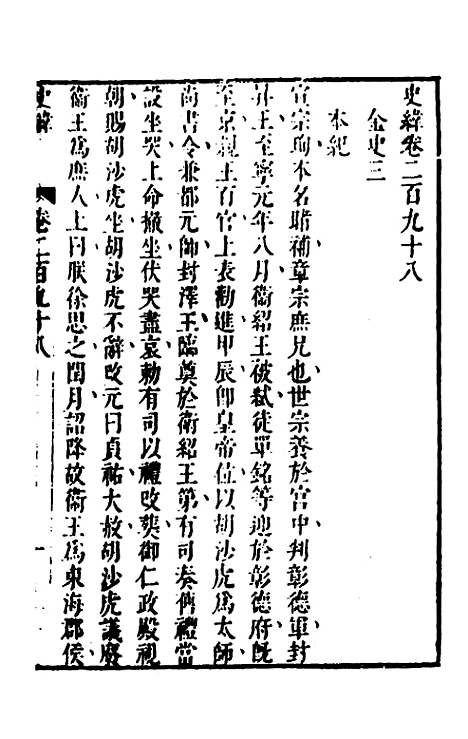 史緯卷二百九十八
金史三
本紀
宣宗珣本名賭補章宗庶兄也世宗養於宮中判彰德軍封
昇王至寧元年八月衞紹王被弑徒單銘等迎於彰德府旣
至京親王百官上表勸進甲辰卽皇帝位以胡沙虎爲太師
尚書令兼都元帥封澤王臨奠於衛紹王第有司奏舊禮當
設坐哭上命撤坐伏哭盡哀勅有司以禮改葬御仁政殿視
朝賜胡沙虎坐胡沙虎不辭改元曰貞祐大赦胡沙虎議廢
衞王爲庶人上曰朕徐思之閏月詔降故衞王爲東海郡侯
史緯 卷二百九十八 一